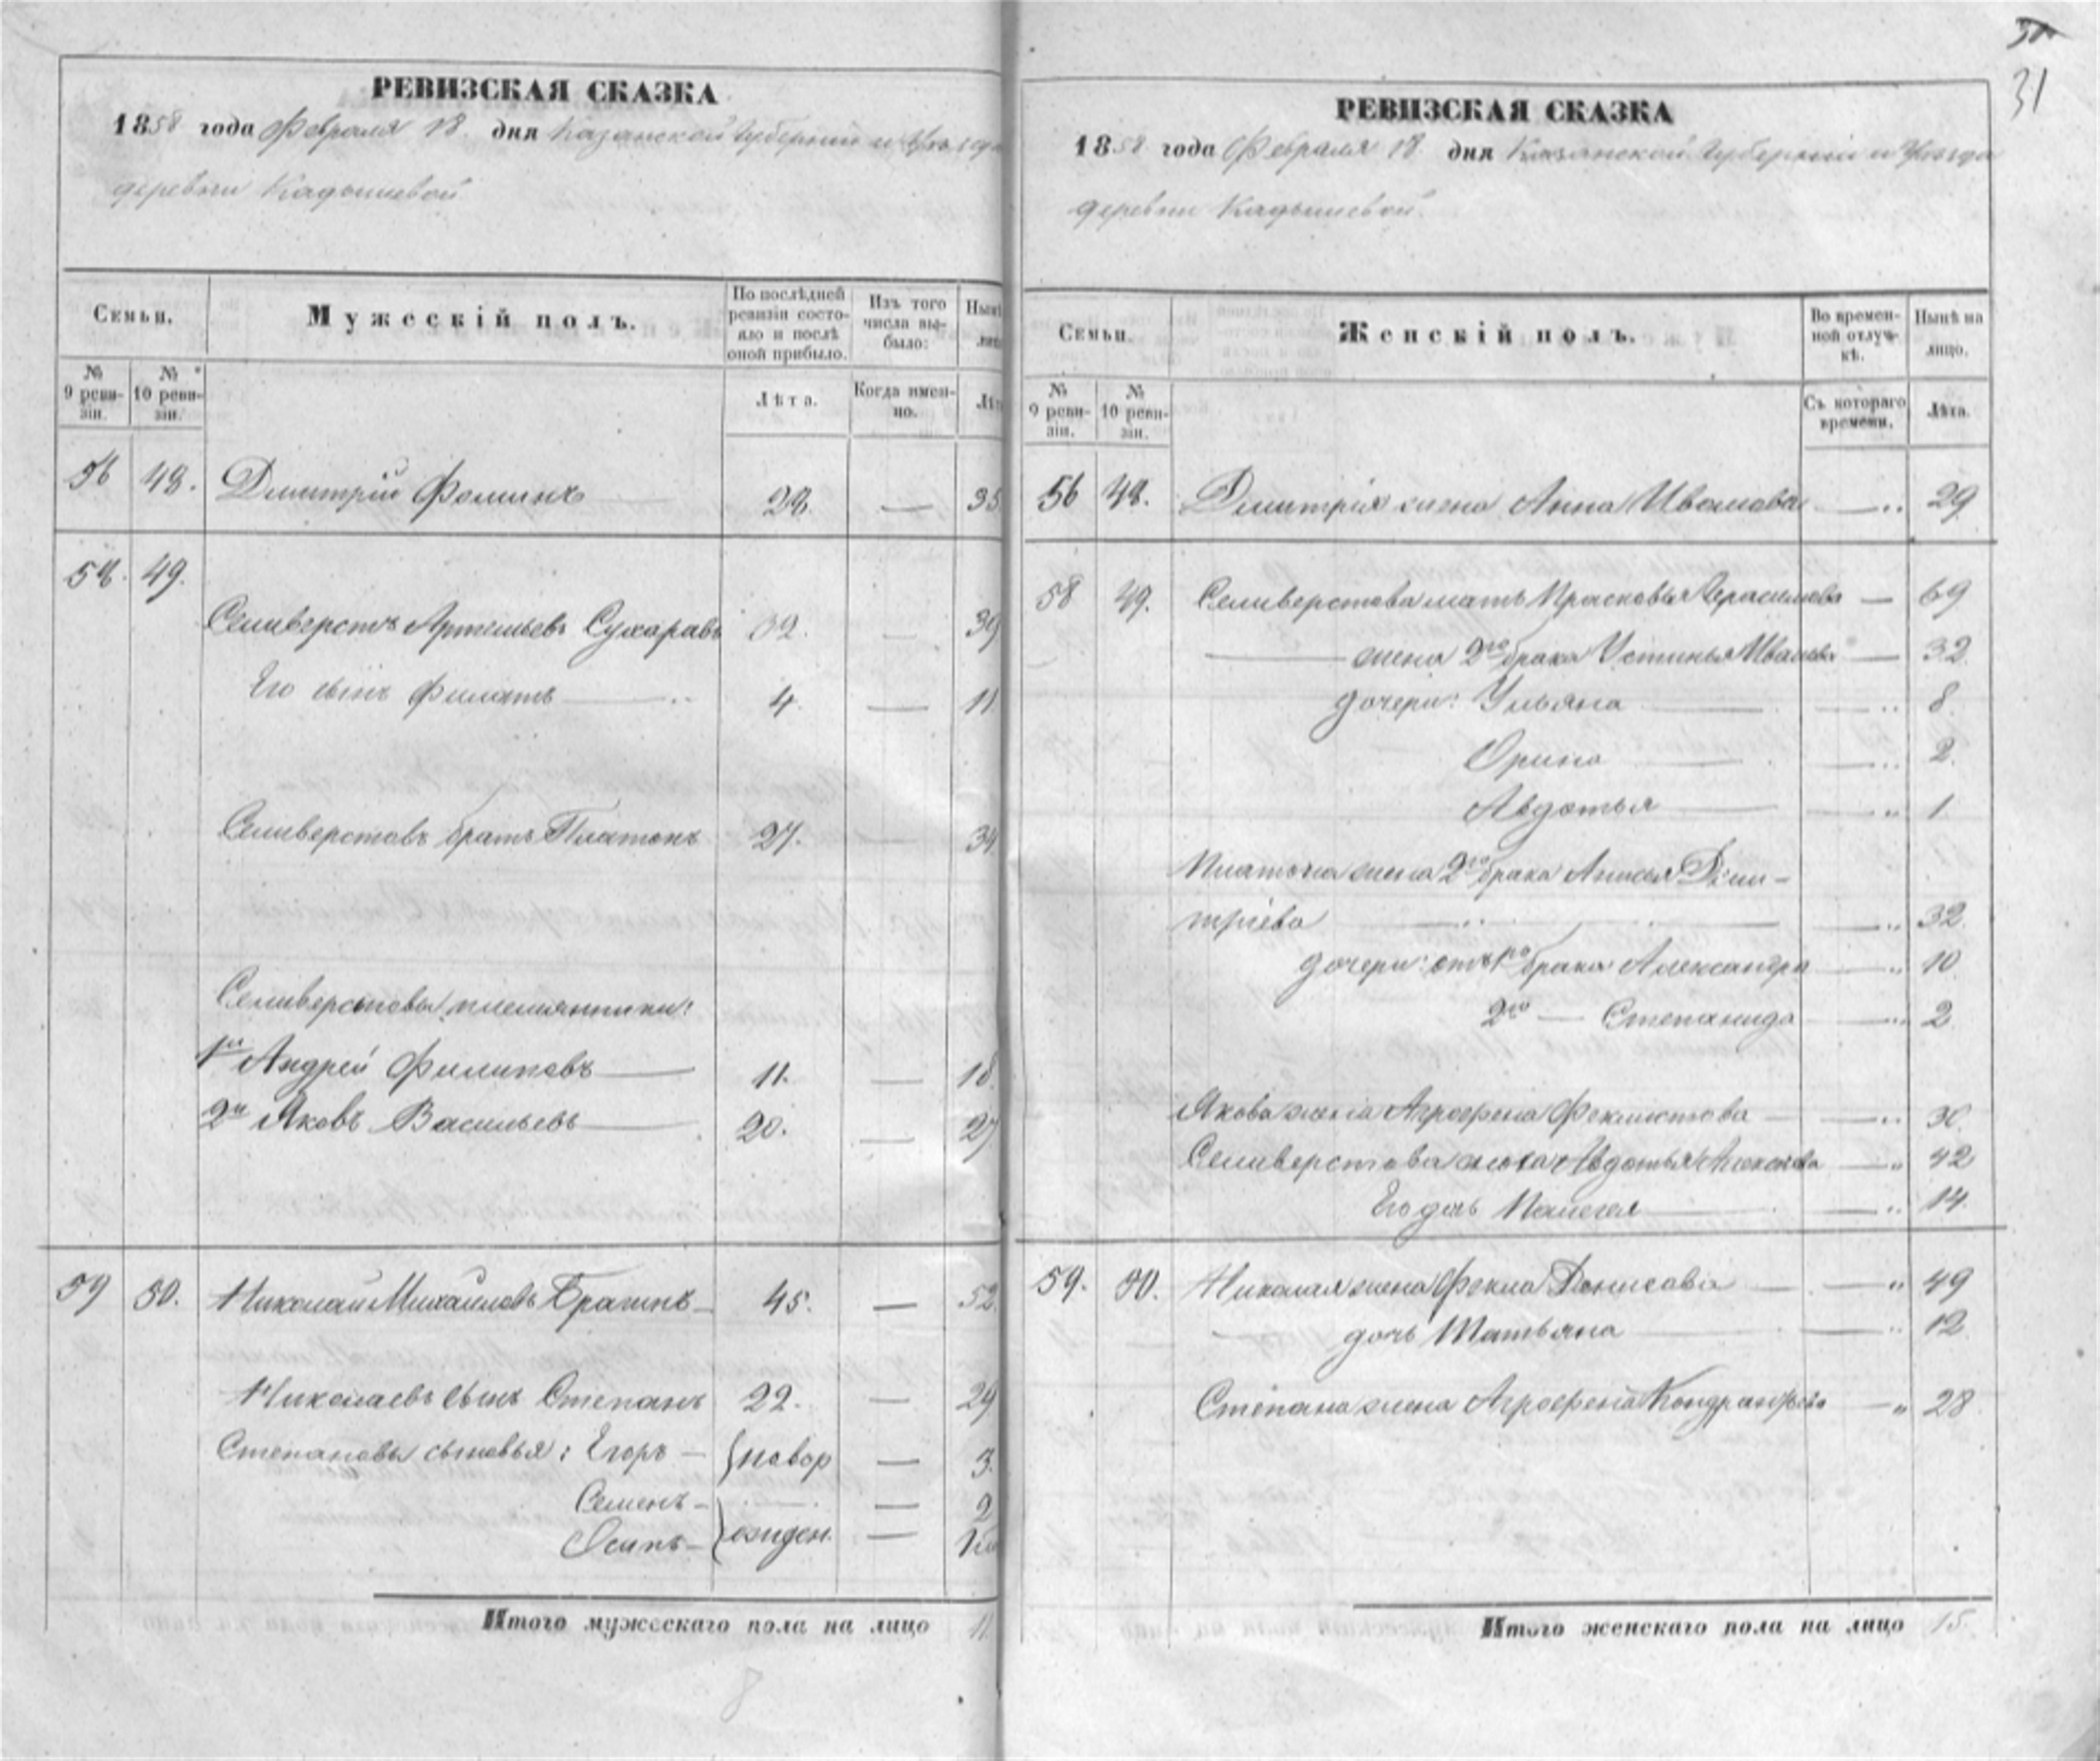 РЕВИЗСКАЯ СКАЗКА
1858 года Февраля 18 дня Казанской Губернии и Уезда
деревни Кадышевой
Семьи.
Мужескій полъ.
По послѣдней ревизіи состояло и послѣ оной прибыло.
Изъ того числа выбыло:
Нынѣ
№ 9 ревизіи.
№ 10 ревизіи.
Лѣта.
Когда именно.
56 48. Дмитрій Фоминъ 28. — 35
58. 49.
Селиверстъ Артемьевъ Сухаревъ 32. — 39
Его сынъ Филатъ — 4. — 11
Селиверстовъ братъ Платонъ 27. — 34
Селиверстовы племянники:
1й Андрей Филиповъ — 11. — 18.
2й Яковъ Васильевъ — 20. — 27
59 50. Николай Михайловъ Брагинъ — 45. — 52.
Николаевъ сынъ Степанъ 22. — 29
Степановы сыновья: Егоръ — новор — 3.
Семенъ — — 2
Осипъ — ожден. —
Итого мужескаго пола на лицо 11.
8
31
РЕВИЗСКАЯ СКАЗКА
1858 года Февраля 18 дня Казанской Губерніи и Уезда
деревни Кадышевой.
Семьи.
Женскій полъ.
Во временной отлучкѣ.
Нынѣ на лицо.
№ 9 ревизіи.
№ 10 ревизіи.
Съ котораго времени.
Лѣта.
56 48. Дмитрія жена Анна Иванова — 29
58 49. Селиверстова мать Прасковья Герасимова — 69
— жена 2го брака Устинья Иванова — 32
дочери: Ульяна — 8
Орина — 2.
Авдотья — 1
Платона жена 2го брака Анисья Дми-
тріева — 32
дочери: отъ 1го брака Александра — 10
2го — Степанида — 2
Якова жена Агрофена Феклистова — 30.
Селиверстова Авдотья — 42
Его дочь Пелагея — 14.
59. 50. Николая жена Фекла Денисова — 49
дочь Татьяна — 12
Степана жена Агрофена Кондратьева — 28
Итого женскаго пола на лицо 15.